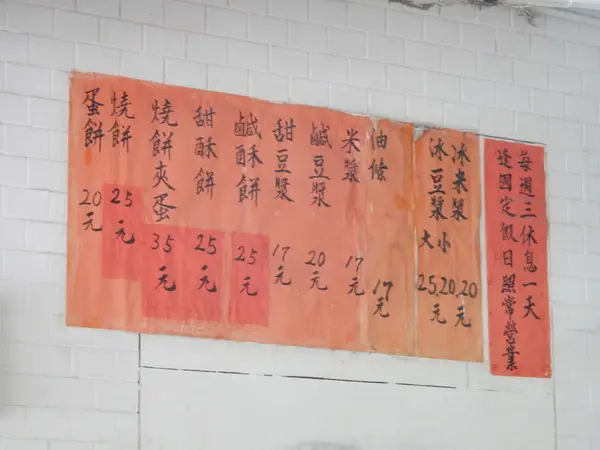 每週三休息一天
逢國定假日照常營業
冰米漿 20元
冰豆漿 大小 25.20.元
油條 17元
米漿 17元
鹹豆漿 20元
甜豆漿 17元
鹹酥餅 25元
甜酥餅 25元
燒餅夾蛋 35元
燒餅 25元
蛋餅 20元